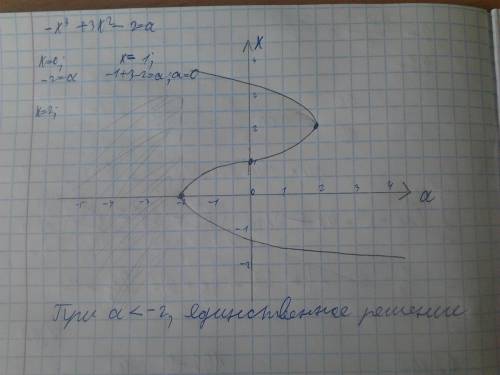 -x³ + 3x² - 2 = a
x=0; x= 1;
-2=a -1+3-2=a; a=0
x=2;
x
4
3
2
1
-5 -4 -3 -2 -1 0 1 2 3 4 a
-1
-2
При a < -2, единственное решение